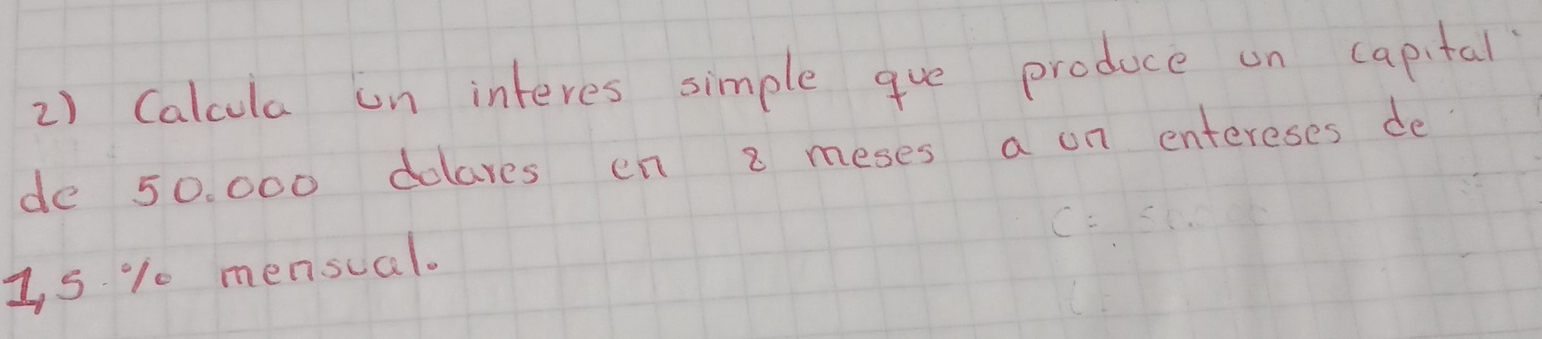 2) Calcula un interes simple que produce un capital
de 50.000 dolares en 8 meses a un entereses de
1,5 % mensual.
C=